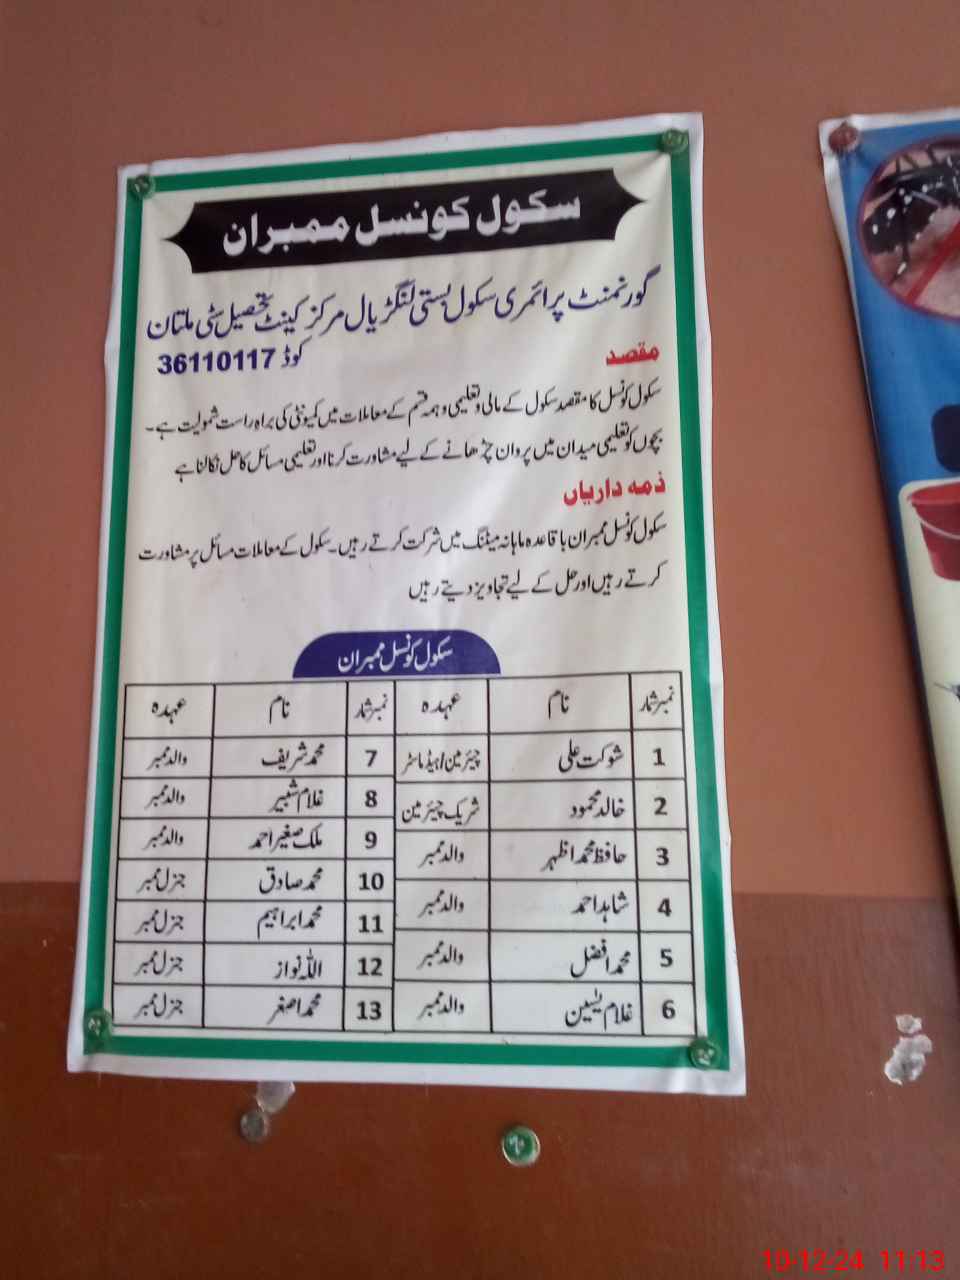 سکول کونسل ممبران
گورنمنٹ پرائمری سکول بستی لنگڑیال مرکز کینٹ تحصیل سٹی ملتان
کوڈ 36110117
مقصد
سکول کونسل کا مقصد سکول کے مالی و تعلیمی و ہمہ قسم کے معاملات میں کمیونٹی کی براہ راست شمولیت ہے۔
بچوں کو تعلیمی میدان میں پروان چڑھانے کے لیے مشاورت کرنا اور تعلیمی مسائل کا حل نکالنا ہے
ذمہ داریاں
سکول کونسل ممبران با قاعدہ ماہانہ میٹنگ میں شرکت کرتے رہیں۔ سکول کے معاملات مسائل پر مشاورت
کرتے رہیں اور حل کے لیے تجاویز دیتے رہیں
سکول کونسل ممبران
نمبر شمار نام عہدہ نمبر شمار نام عہدہ
1 شوکت علی چیئرمین/ہیڈ ماسٹر 7 محمد شریف والد ممبر
2 خالد محمود شریک چیئرمین 8 غلام شبیر والد ممبر
3 حافظ محمد اظہر والد ممبر 9 ملک صغیر احمد والد ممبر
4 شاہد احمد والد ممبر 10 محمد صادق جنرل ممبر
5 محمد افضل والد ممبر 11 محمد ابراہیم جنرل ممبر
6 غلام یٰسین والد ممبر 12 اللہ نواز جنرل ممبر
13 محمد اصغر جنرل ممبر
10-12-24 11:13